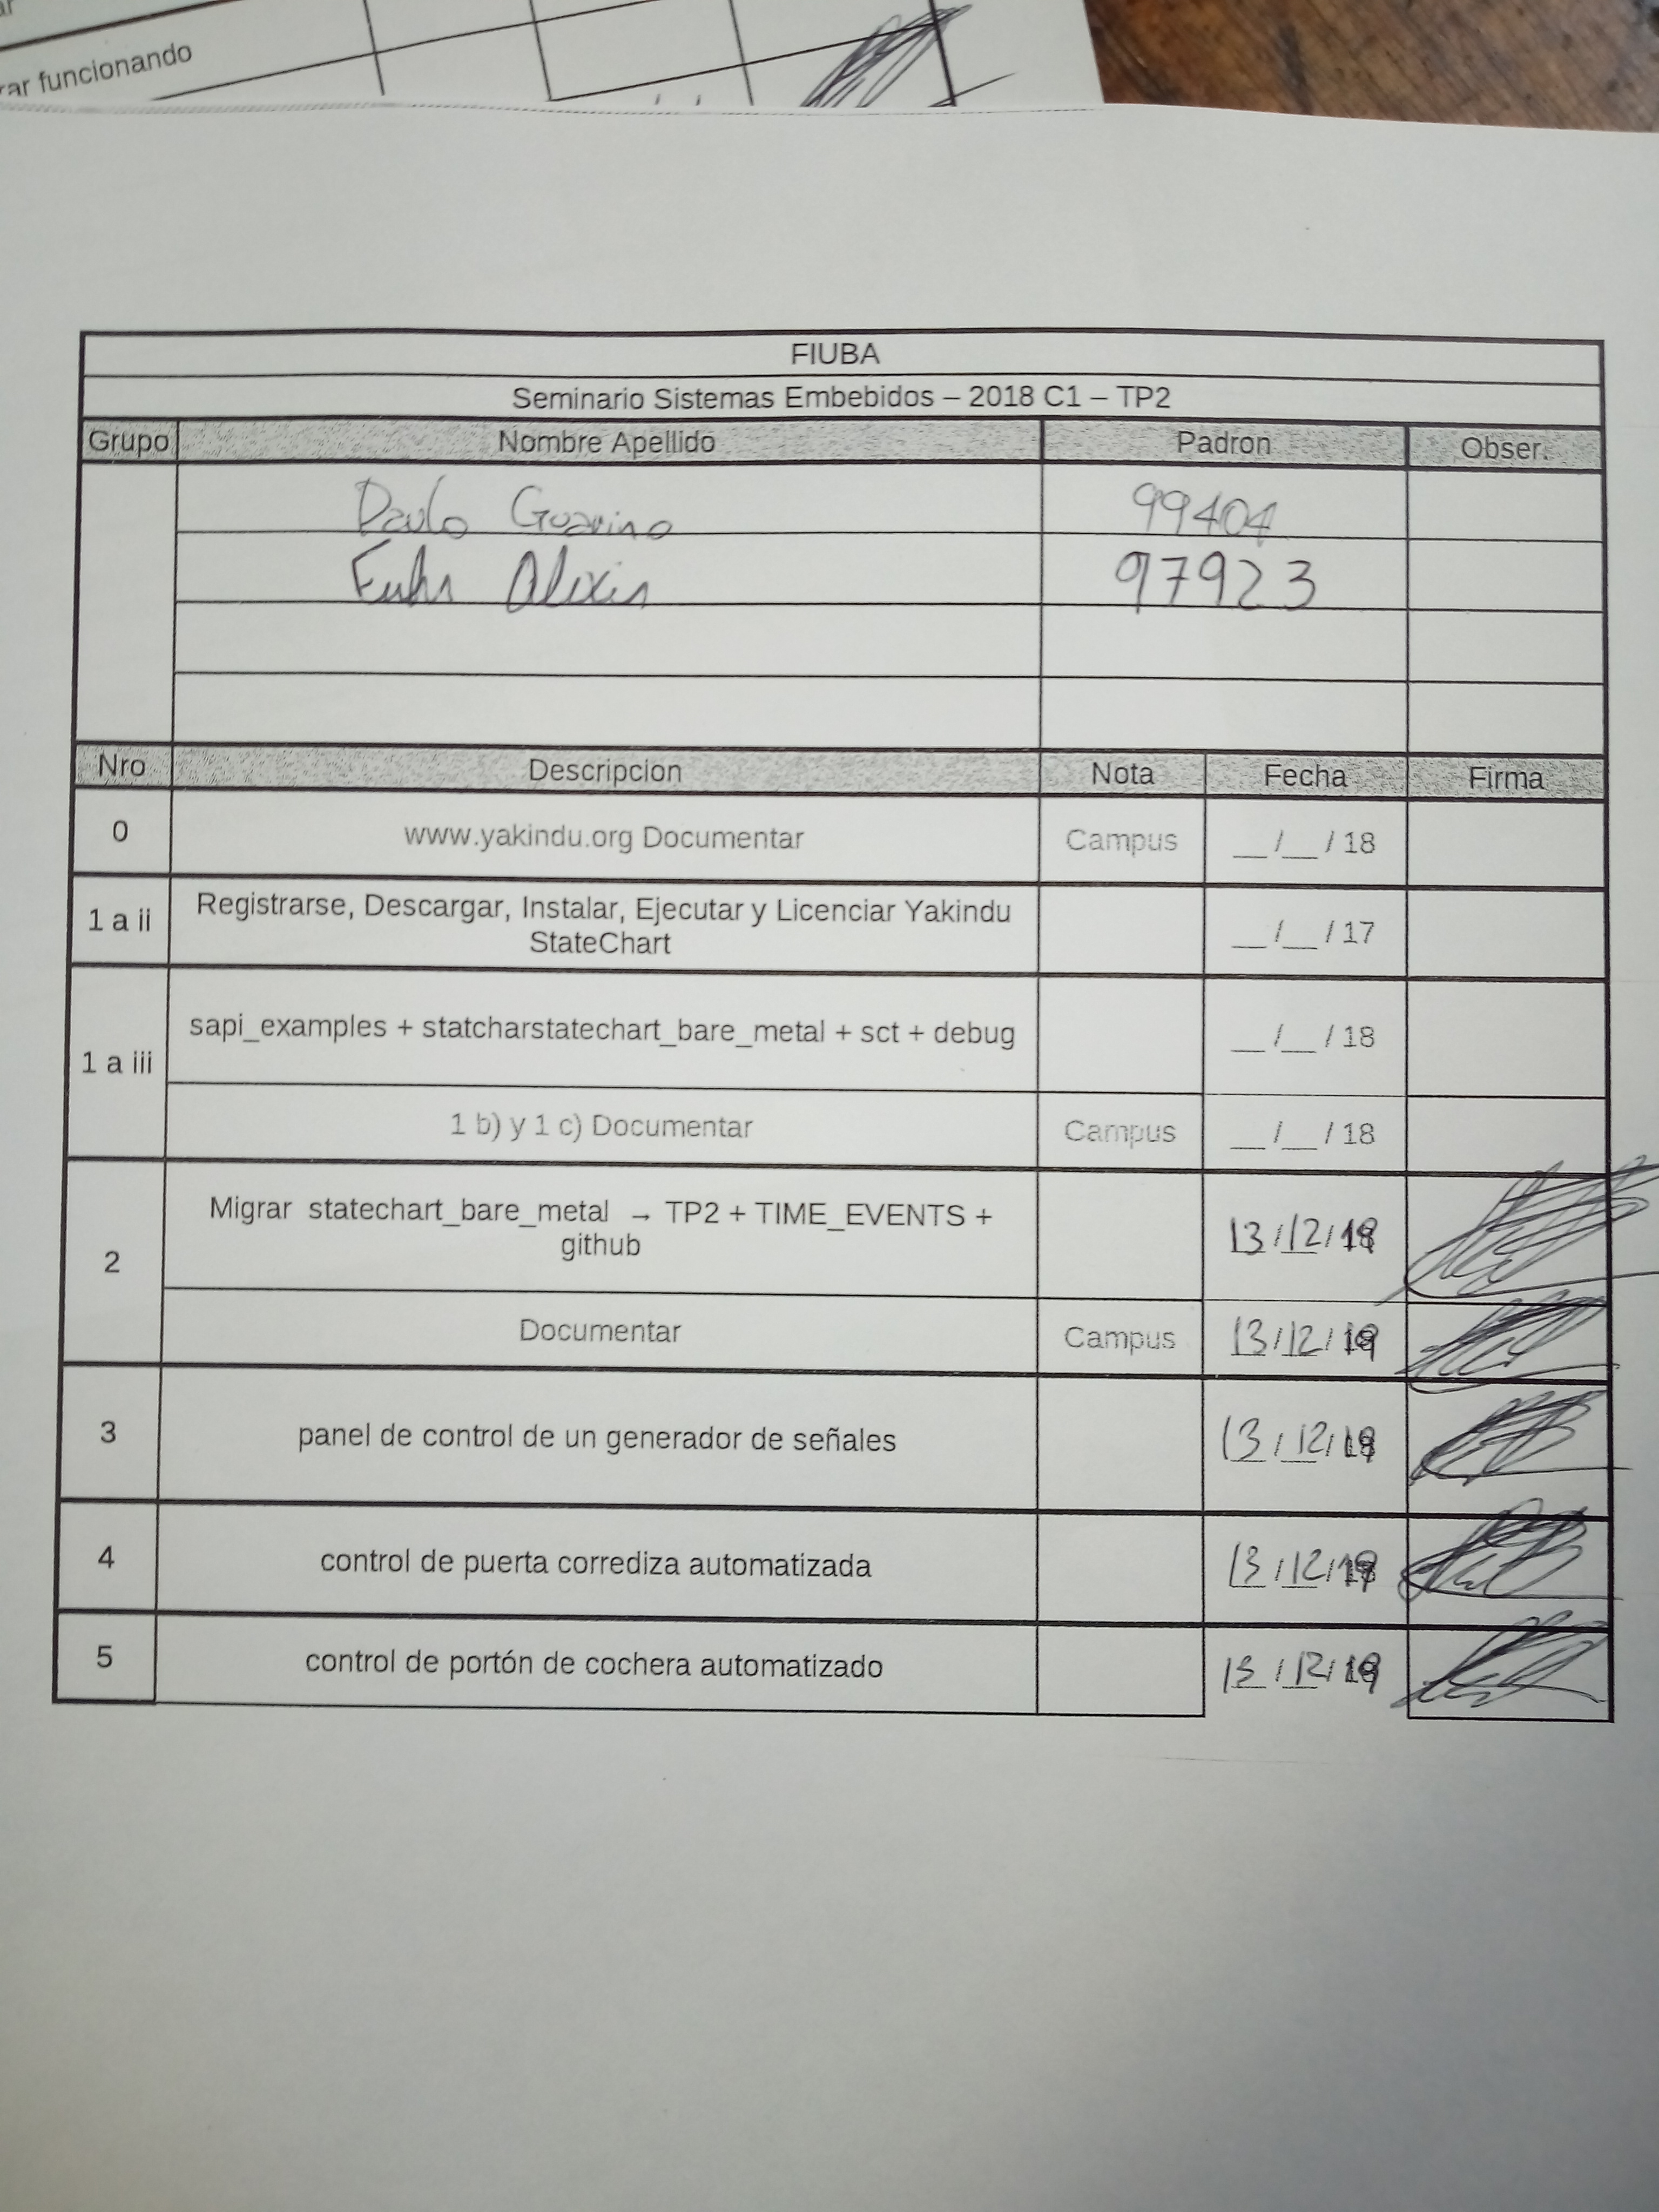 rar funcionando
FIUBA
Seminario Sistemas Embebidos – 2018 C1 – TP2
Grupo Nombre Apellido Padron Obser.
Paulo Guarino 99404
97923
Nro Descripcion Nota Fecha Firma
0 www.yakindu.org Documentar Campus __/__ / 18
1 a ii Registrarse, Descargar, Instalar, Ejecutar y Licenciar Yakindu
StateChart __/__ / 17
1 a iii sapi_examples + statcharstatechart_bare_metal + sct + debug __/__ / 18
1 b) y 1 c) Documentar Campus __/__ / 18
2 Migrar statechart_bare_metal → TP2 + TIME_EVENTS +
github 13/12/
Documentar Campus 13/12/
3 panel de control de un generador de señales 13/12/
4 control de puerta corrediza automatizada 13/12/
5 control de portón de cochera automatizado 13/12/